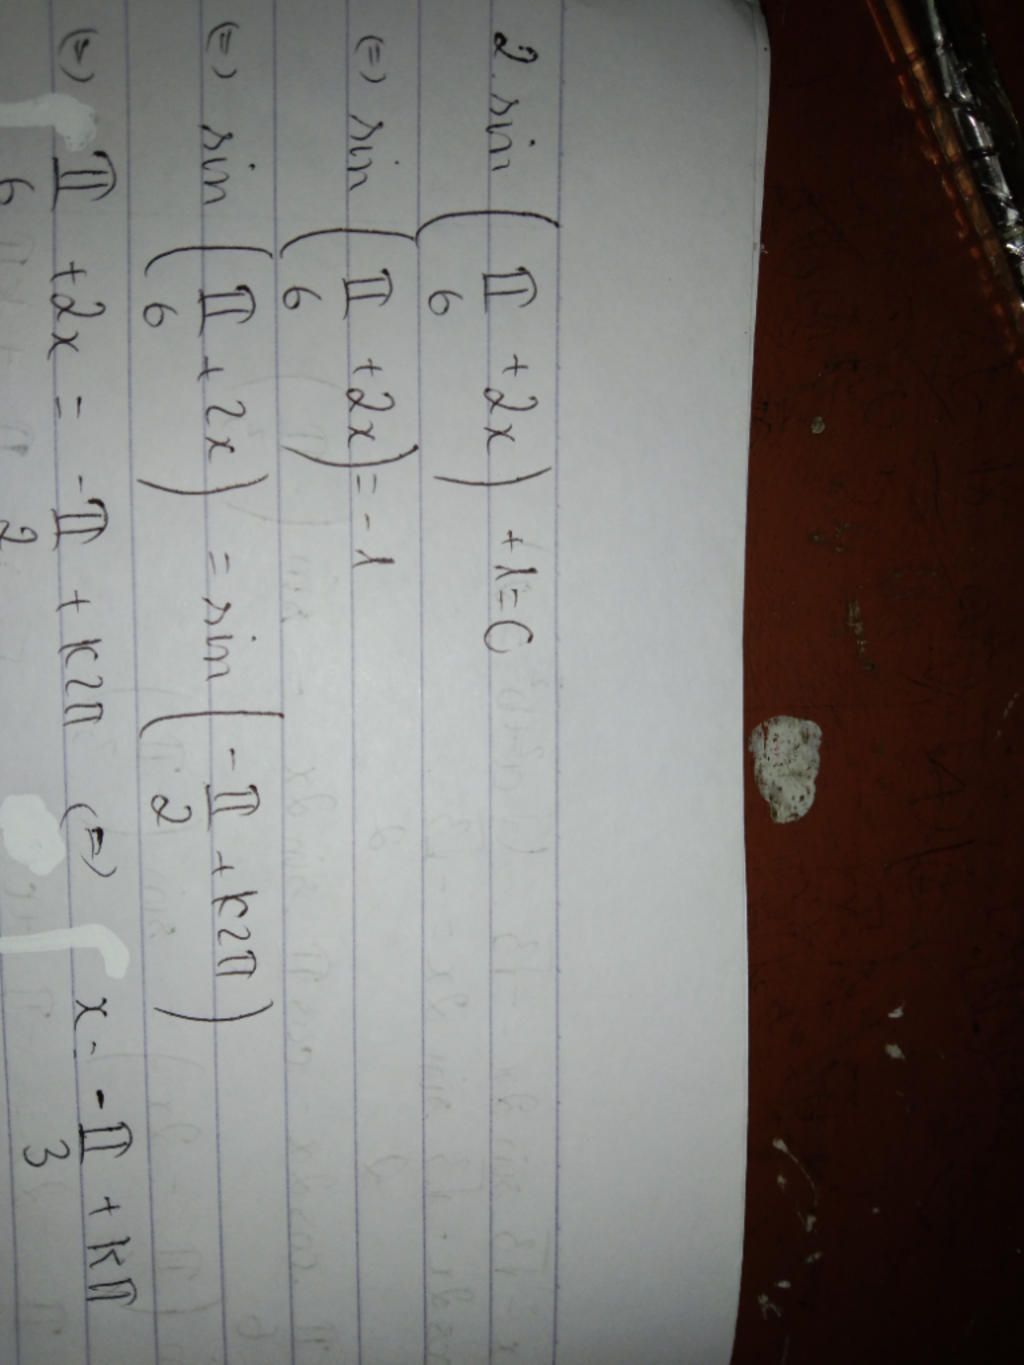 2. sin ( π/6 + 2x ) + 1 = 0
(=) sin ( π/6 + 2x ) = -1
(=) sin ( π/6 + 2x ) = sin ( -π/2 + k2π )
(=) π/6 + 2x = -π/2 + k2π (=) x = -π/3 + kπ